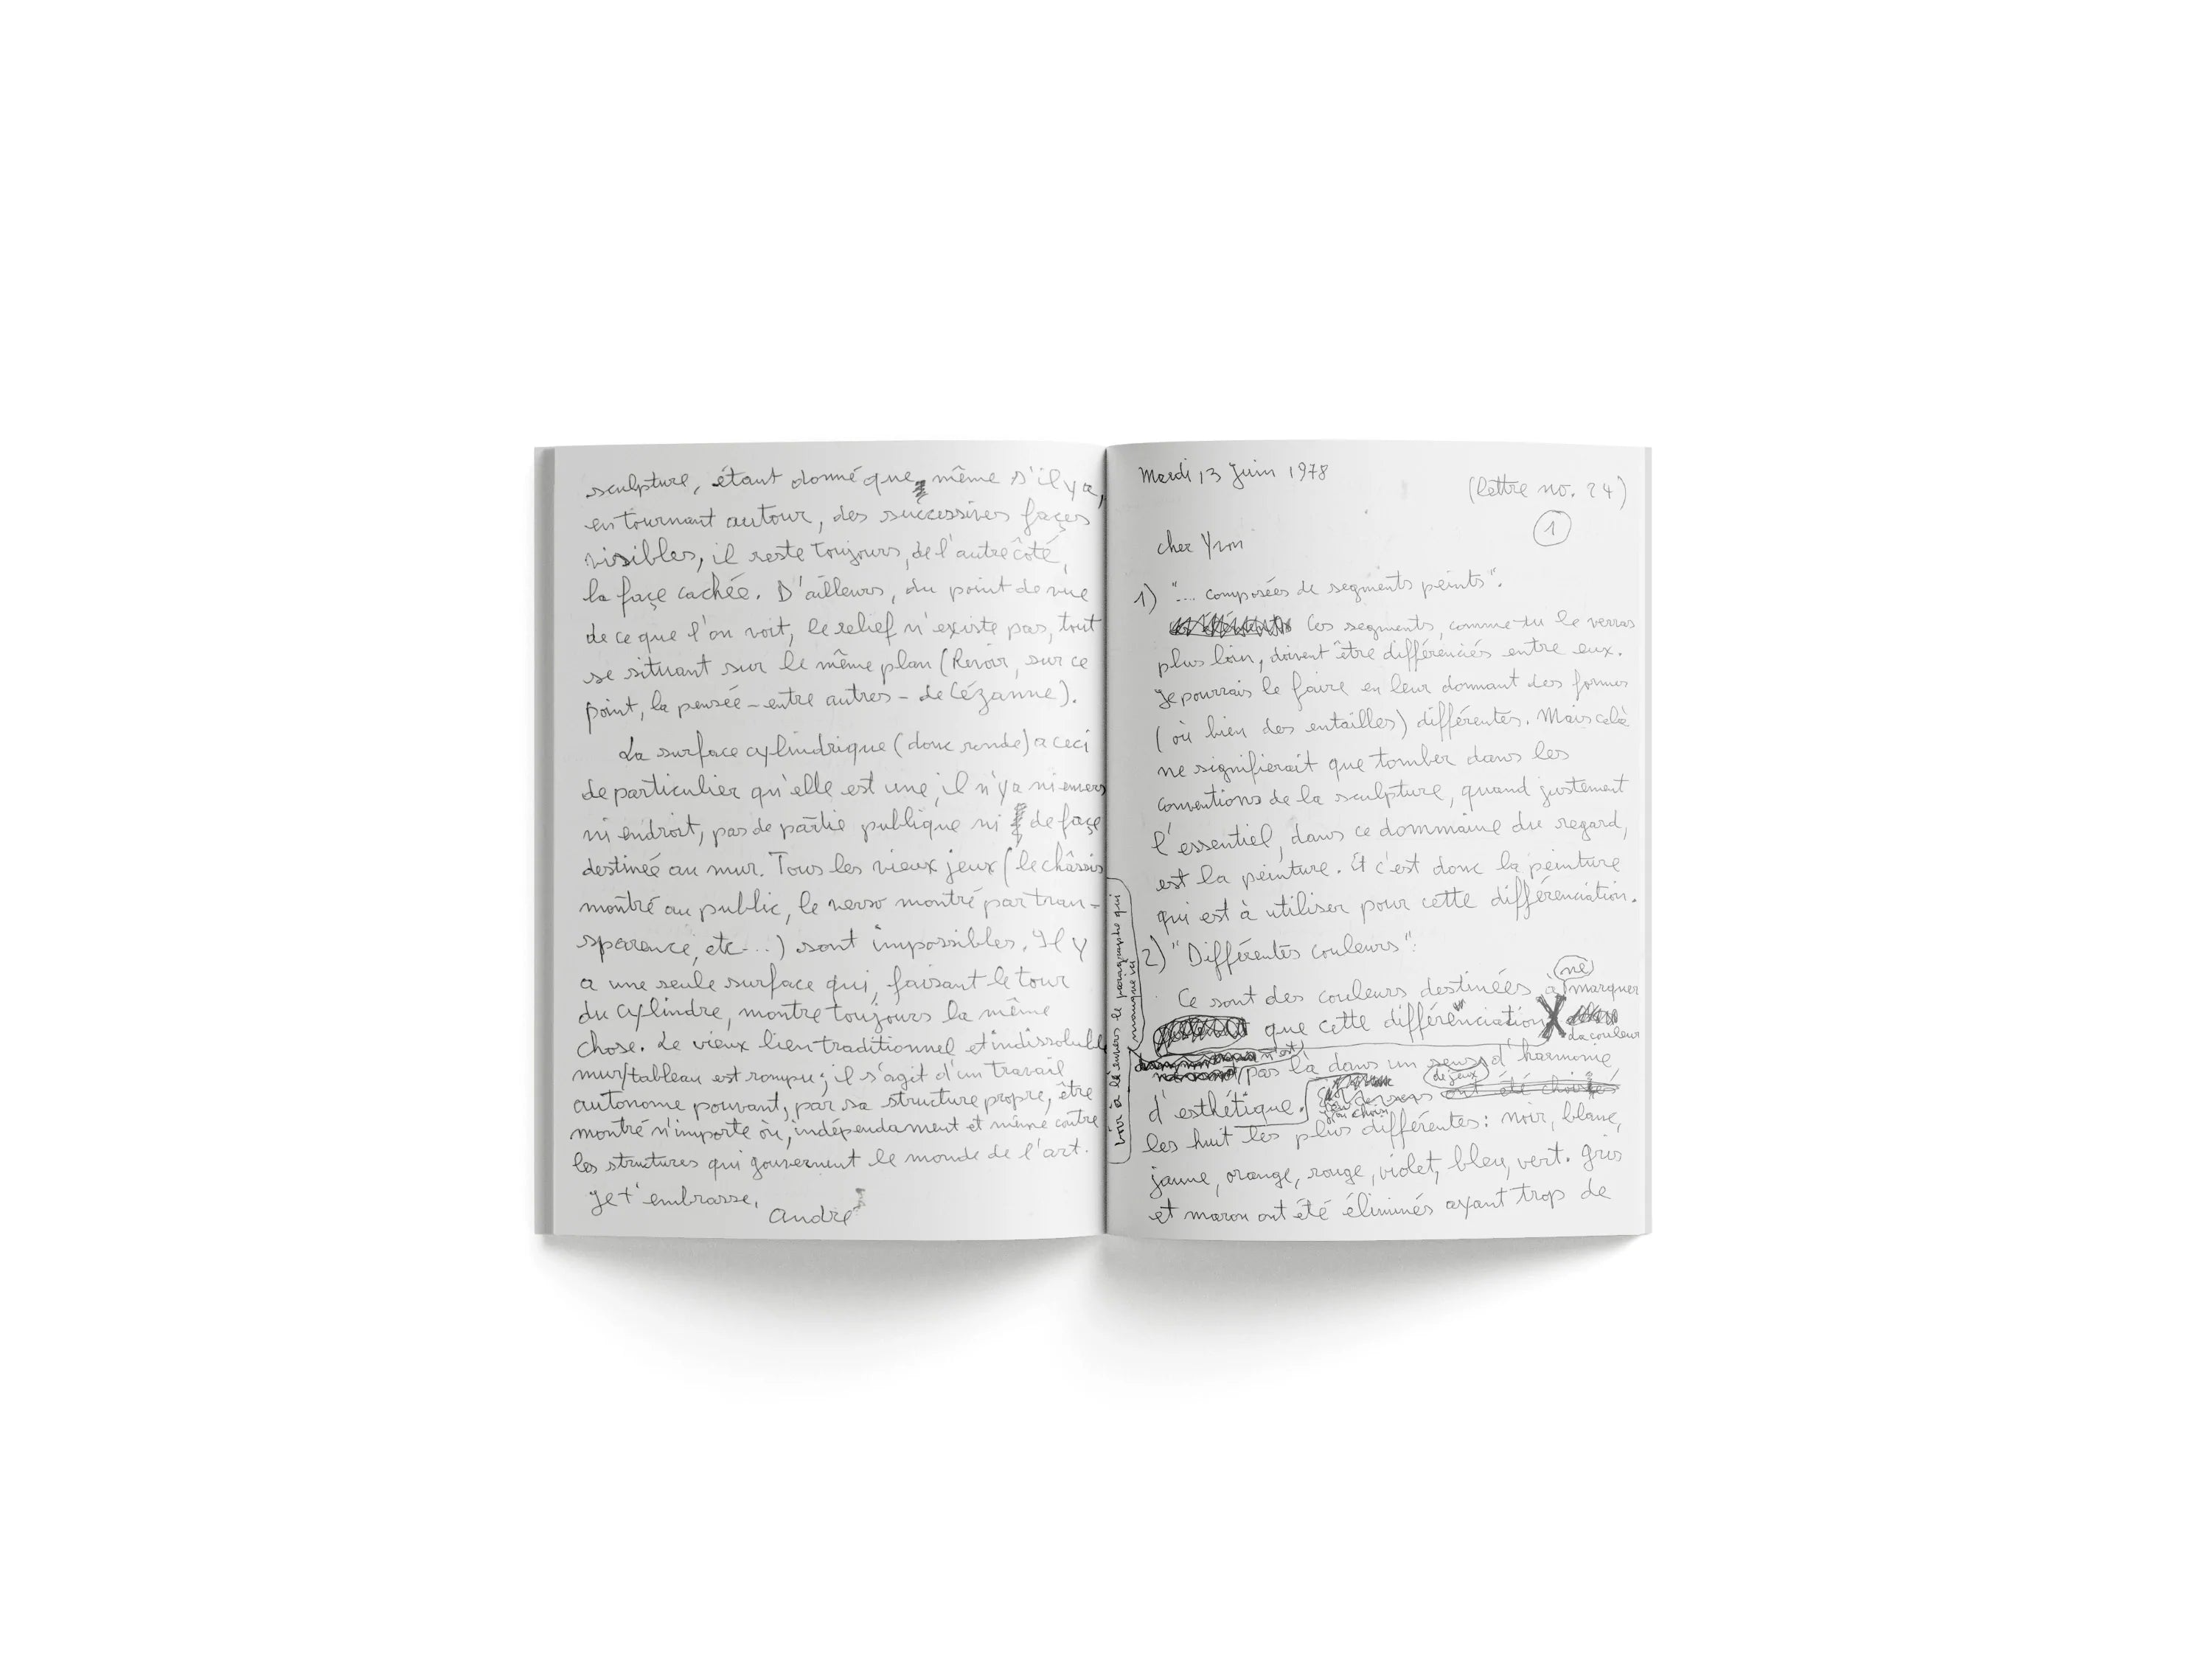 sculpture, étant donné que, même s'il y a,
en tournant autour, des successives façes
visibles, il reste toujours, de l'autre côté,
la façe cachée. D'ailleurs, du point de vue
de ce que l'on voit, le relief n'existe pas, tout
se situant sur le même plan (Revoir, sur ce
point, la pensée - entre autres - de Cézanne).
La surface cylindrique (donc ronde) a ceci
de particulier qu'elle est une, il n'y a ni envers
ni endroit, pas de partie publique ni de façe
destinée au mur. Tous les vieux jeux (le châssis
montré au public, le verso montré par tran-
sparence, etc...) sont impossibles. Il y
a une seule surface qui, faisant le tour
du cylindre, montre toujours la même
chose. Le vieux lien traditionnel et indissoluble
mur/tableau est rompu; il s'agit d'un travail
autonome pouvant, par sa structure propre, être
montré n'importe où, indépendament et même contre
les structures qui gouvernent le monde de l'art.
Je t'embrasse,
André
Mardi 13 Juin 1978
(lettre no. 24)
1
cher Yvon
1) "... composées de segments peints".
Ces segments, comme tu le verras
plus loin, doivent être différenciés entre eux.
Je pourrais le faire en leur donnant des formes
(où bien des entailles) différentes. Mais celà
ne signifierait que tomber dans les
conventions de la sculpture, quand justement
l'essentiel, dans ce dommaine du regard,
est la peinture. Et c'est donc la peinture
qui est à utiliser pour cette différenciation.
voir à l'envers le paragraphe qui
manque ici
2) "Différentes couleurs":
ne
Ce sont des couleurs destinées à marquer
que cette différenciation
La couleur
n'est
pas là dans un sens d'harmonie
de jeux
ont été choisies
d'esthétique. j'ai choisi
les huit les plus différentes: noir, blanc,
jaune, orange, rouge, violet, bleu, vert. Gris
et maron ont été éliminés ayant trop de